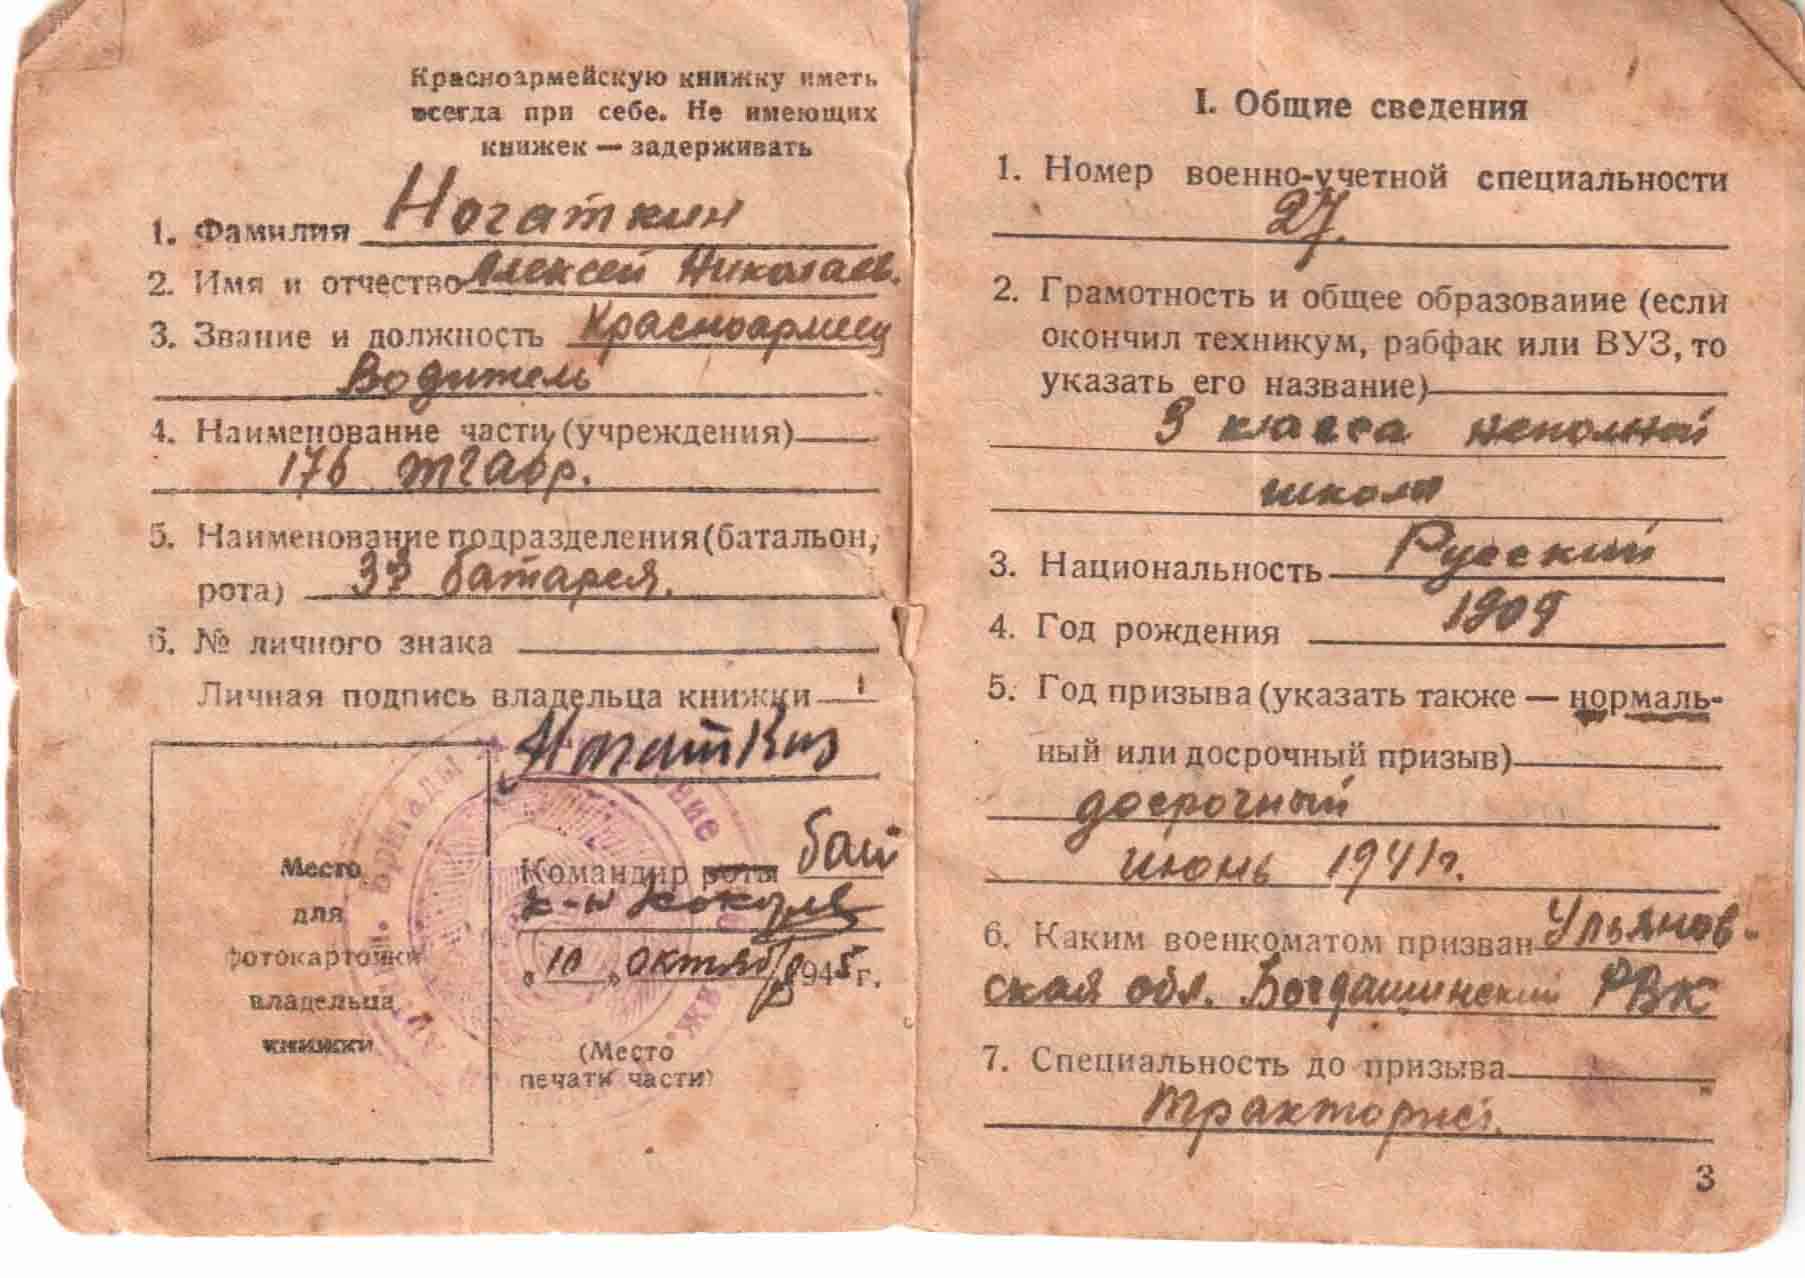 Красноармейскую книжку иметь
всегда при себе. Не имеющих
книжек — задерживать
1. Фамилия Ногаткин
2. Имя и отчество Алексей Николаев.
3. Звание и должность Красноармеец
Водитель
4. Наименование части (учреждения)
176 тгабр.
5. Наименование подразделения (батальон,
рота) батарея.
6. № личного знака
Личная подпись владельца книжки
Ногаткин
Место
для
фотокарточки
владельца
книжки
Командир роты бат
к-н
"10" октября 1945 г.
(Место
печати части)
бригады
I. Общие сведения
1. Номер военно-учетной специальности
27.
2. Грамотность и общее образование (если
окончил техникум, рабфак или ВУЗ, то
указать его название)
3 класса неполной
школы
3. Национальность Русский
4. Год рождения 1909
5. Год призыва (указать также — нормаль-
ный или досрочный призыв)
досрочный
июнь 1941г.
6. Каким военкоматом призван Ульянов-
ская обл. Богдашинский РВК
7. Специальность до призыва
тракторист.
3